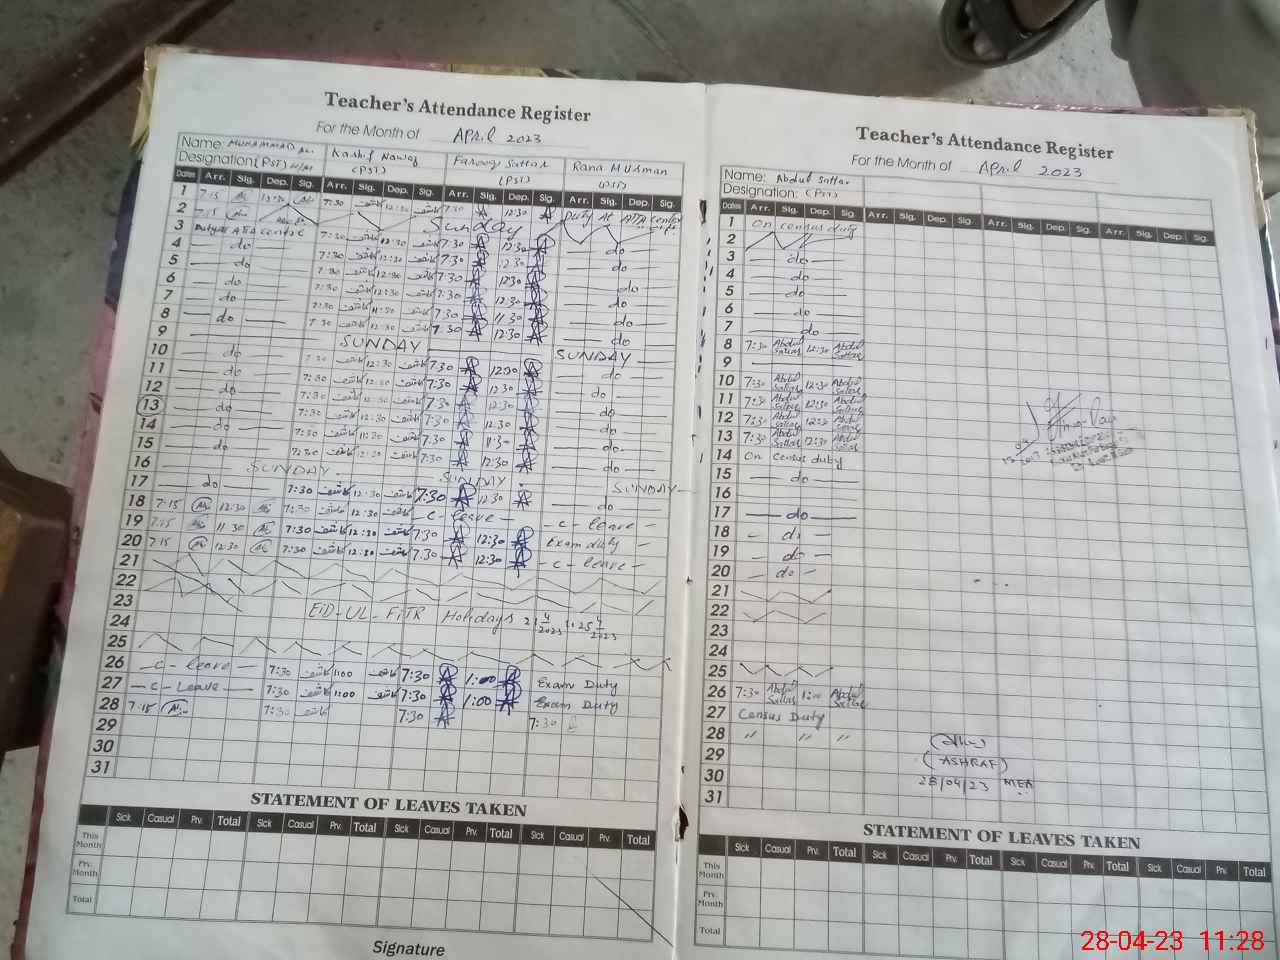 Teacher's Attendance Register
For the Month of April 2023
Name: MUHAMMAD Ali Kashif Nawaz Farooq Sattar Rana Musman
Designation: (PST) H/M (PST) (PST) (PST)
Dates Arr. Sig. Dep. Sig. Arr. Sig. Dep. Sig. Arr. Sig. Dep. Sig. Arr. Sig. Dep. Sig.
1 7:15 12:30 7:30 کاشف 12:30 کاشف 7:30 12:30 Duty At ATTA Center
2 7:15 Sunday
3 Duty At ATTA Center 7:30 کاشف 12:30 کاشف 7:30 12:30 do
4 do 7:30 کاشف 12:30 کاشف 7:30 12:30 do
5 do 7:30 کاشف 12:30 کاشف 7:30 12:30 do
6 do 7:30 کاشف 12:30 کاشف 7:30 12:30 do
7 do 7:30 کاشف 11:30 کاشف 7:30 11:30 do
8 do 7:30 کاشف 12:30 کاشف 7:30 12:30 do
9 SUNDAY SUNDAY
10 do 7:30 کاشف 12:30 کاشف 7:30 12:30 do
11 do 7:30 کاشف 12:30 کاشف 7:30 12:30 do
12 do 7:30 کاشف 12:30 کاشف 7:30 12:30 do
13 do 7:30 کاشف 12:30 کاشف 7:30 12:30 do
14 do 7:30 کاشف 11:30 کاشف 7:30 11:30 do
15 do 7:30 کاشف 12:30 کاشف 7:30 12:30 do
16 SUNDAY SUNDAY SUNDAY
17 do 7:30 کاشف 12:30 کاشف 7:30 12:30
18 7:15 12:30 7:30 کاشف 12:30 کاشف - c - leave - - c - leave -
19 7:15 11:30 7:30 کاشف 12:30 کاشف 7:30 12:30 Exam duty
20 7:15 12:30 7:30 کاشف 12:30 کاشف 7:30 12:30 - c - leave -
21
22
23
24 EID-UL-FITR Holidays 21 4 2023 to 25 4 2023
25
26 - c - leave - 7:30 کاشف 1:00 کاشف 7:30 1:00 Exam Duty
27 - c - Leave - 7:30 کاشف 1:00 کاشف 7:30 1:00 Exam Duty
28 7:15 7:30 کاشف 7:30 7:30
29
30
31
STATEMENT OF LEAVES TAKEN
Sick Casual Prv. Total Sick Casual Prv. Total Sick Casual Prv. Total Sick Casual Prv. Total
This Month
Prv. Month
Total
Signature
Teacher's Attendance Register
For the Month of April 2023
Name: Abdul Sattar
Designation: (PST)
Dates Arr. Sig. Dep. Sig. Arr. Sig. Dep. Sig. Arr. Sig. Dep. Sig. Arr. Sig. Dep. Sig.
1 On census duty
2
3 do
4 do
5 do
6 do
7 do
8 7:30 Abdul Sattar 12:30 Abdul Sattar
9
10 7:30 Abdul Sattar 12:30 Abdul Sattar
11 7:30 Abdul Sattar 12:30 Abdul Sattar
12 7:30 Abdul Sattar 12:30 Abdul Sattar
13 7:30 Abdul Sattar 12:30 Abdul Sattar
14 On census duty
15 do
16
17 do
18 - do -
19 - do -
20 - do -
21
22
23
24
25
26 7:30 Abdul Sattar 1:00 Abdul Sattar
27 Census Duty
28 " " "
29 (ASHRAF)
30 28/04/23 MEA
31
STATEMENT OF LEAVES TAKEN
Sick Casual Prv. Total Sick Casual Prv. Total Sick Casual Prv. Total Sick Casual Prv. Total
This Month
Prv. Month
Total
28-04-23 11:28